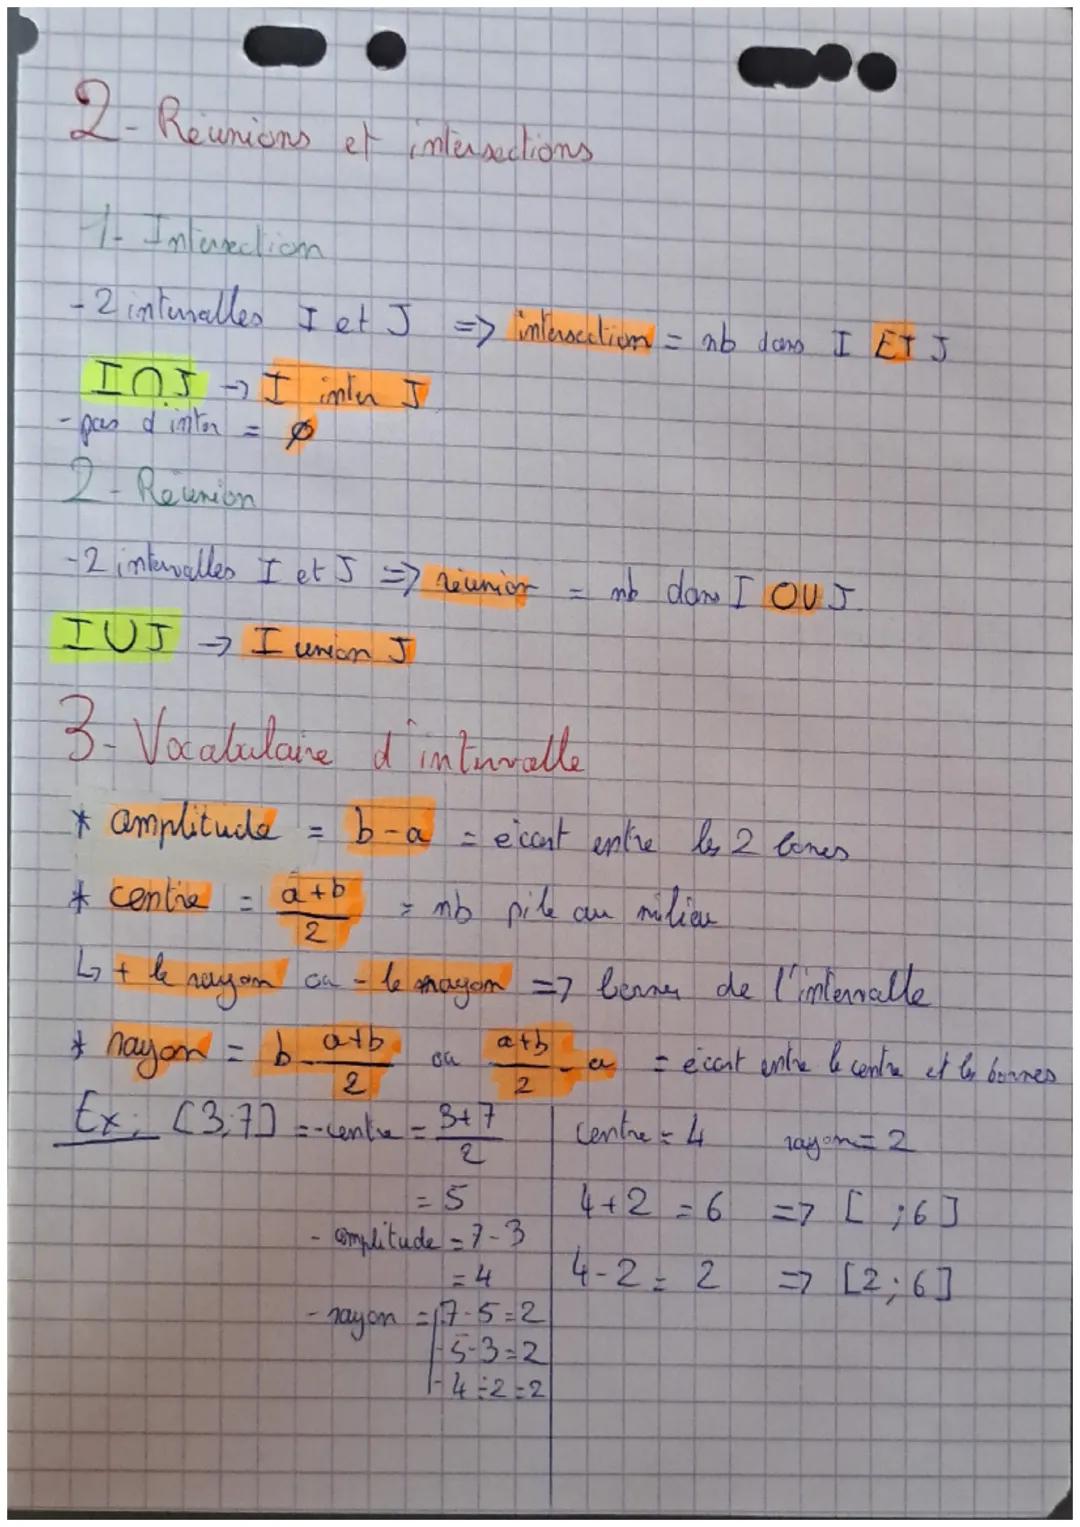 2- Réunions et intersections
1- Intersection
- 2 intervalles I et J => intersection = nb dans I ET J
I∩J → I inter J
- pas d'inter = ∅
2- Réunion
- 2 intervalles I et J => réunion = nb dans I OU J
I∪J → I union J
3- Vocabulaire d'intervalle
* amplitude = b-a = écart entre les 2 bornes
* centre = (a+b)/2 = nb pile au milieu
↳ + le rayon ou - le rayon => bornes de l'intervalle
* rayon = b - (a+b)/2 ou (a+b)/2 - a = écart entre le centre et les bornes
Ex: [3;7] = - centre = (3+7)/2
= 5
- amplitude = 7-3
= 4
- rayon = 7-5=2
- 5-3=2
- 4÷2=2
centre = 4 rayon = 2
4+2 = 6 => [ ;6]
4-2 = 2 => [2;6]